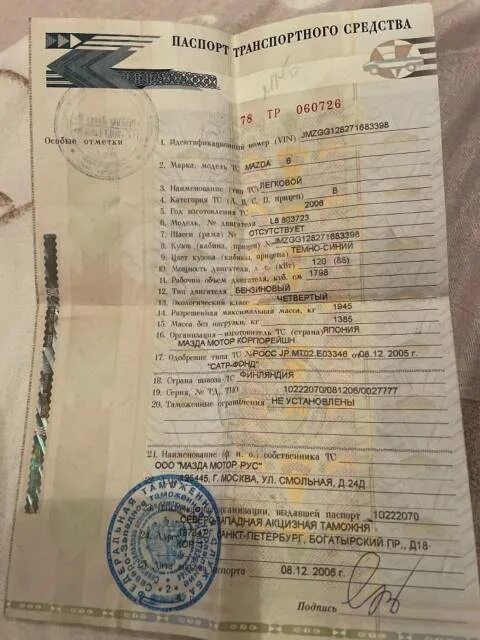 ПАСПОРТ ТРАНСПОРТНОГО СРЕДСТВА
78 ТР 060726
Особые отметки
1. Идентификационный номер (VIN) JMZGG128271683398
2. Марка, модель ТС MAZDA 6
3. Наименование (тип ТС) ЛЕГКОВОЙ
4. Категория ТС (A, B, C, D, прицеп) B
5. Год изготовления ТС 2006
6. Модель, № двигателя L8 803723
7. Шасси (рама) № ОТСУТСТВУЕТ
8. Кузов (кабина, прицеп) № JMZGG128271683398
9. Цвет кузова (кабины, прицепа) ТЕМНО-СИНИЙ
10. Мощность двигателя, л. с. (кВт) 120 (88)
11. Рабочий объем двигателя, куб. см 1798
12. Тип двигателя БЕНЗИНОВЫЙ
13. Экологический класс ЧЕТВЕРТЫЙ
14. Разрешенная максимальная масса, кг 1945
15. Масса без нагрузки, кг 1385
16. Организация-изготовитель ТС (страна) ЯПОНИЯ
МАЗДА МОТОР КОРПОРЕЙШН
17. Одобрение типа ТС № РОСС JP.MT02.E03346 от 08.12.2005 г.
"САТР-ФОНД"
18. Страна вывоза ТС ФИНЛЯНДИЯ
19. Серия, № ТД, ТПО 10222070/081206/0027777
20. Таможенные ограничения НЕ УСТАНОВЛЕНЫ
21. Наименование (ф. и. о.) собственника ТС
ООО "МАЗДА МОТОР РУС"
125445, Г. МОСКВА, УЛ. СМОЛЬНАЯ, Д.24Д
организации, выдавшей паспорт 10222070
СЕВЕРО-ЗАПАДНАЯ АКЦИЗНАЯ ТАМОЖНЯ
САНКТ-ПЕТЕРБУРГ, БОГАТЫРСКИЙ ПР., Д18
паспорта 08.12.2006 г.
Подпись